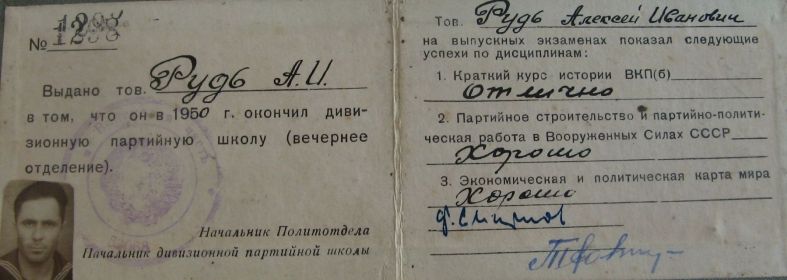 № 1288
Выдано тов. Рудь А.И.
в том, что он в 1950 г. окончил диви-
зионную партийную школу (вечернее
отделение).
Начальник Политотдела
Начальник дивизионной партийной школы
Тов. Рудь Алексей Иванович
на выпускных экзаменах показал следующие
успехи по дисциплинам:
1. Краткий курс истории ВКП(б)
Отлично
2. Партийное строительство и партийно-полити-
ческая работа в Вооруженных Силах СССР
Хорошо
3. Экономическая и политическая карта мира
Хорошо